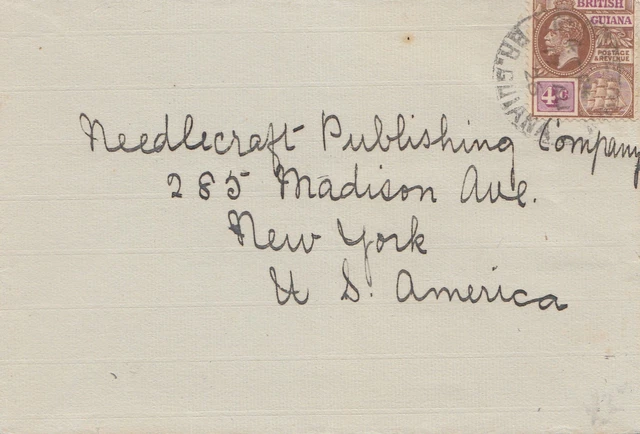 BRITISH
GUIANA
POSTAGE
& REVENUE
4c
Needlecraft Publishing Company
285 Madison Ave.
New York
U S. America